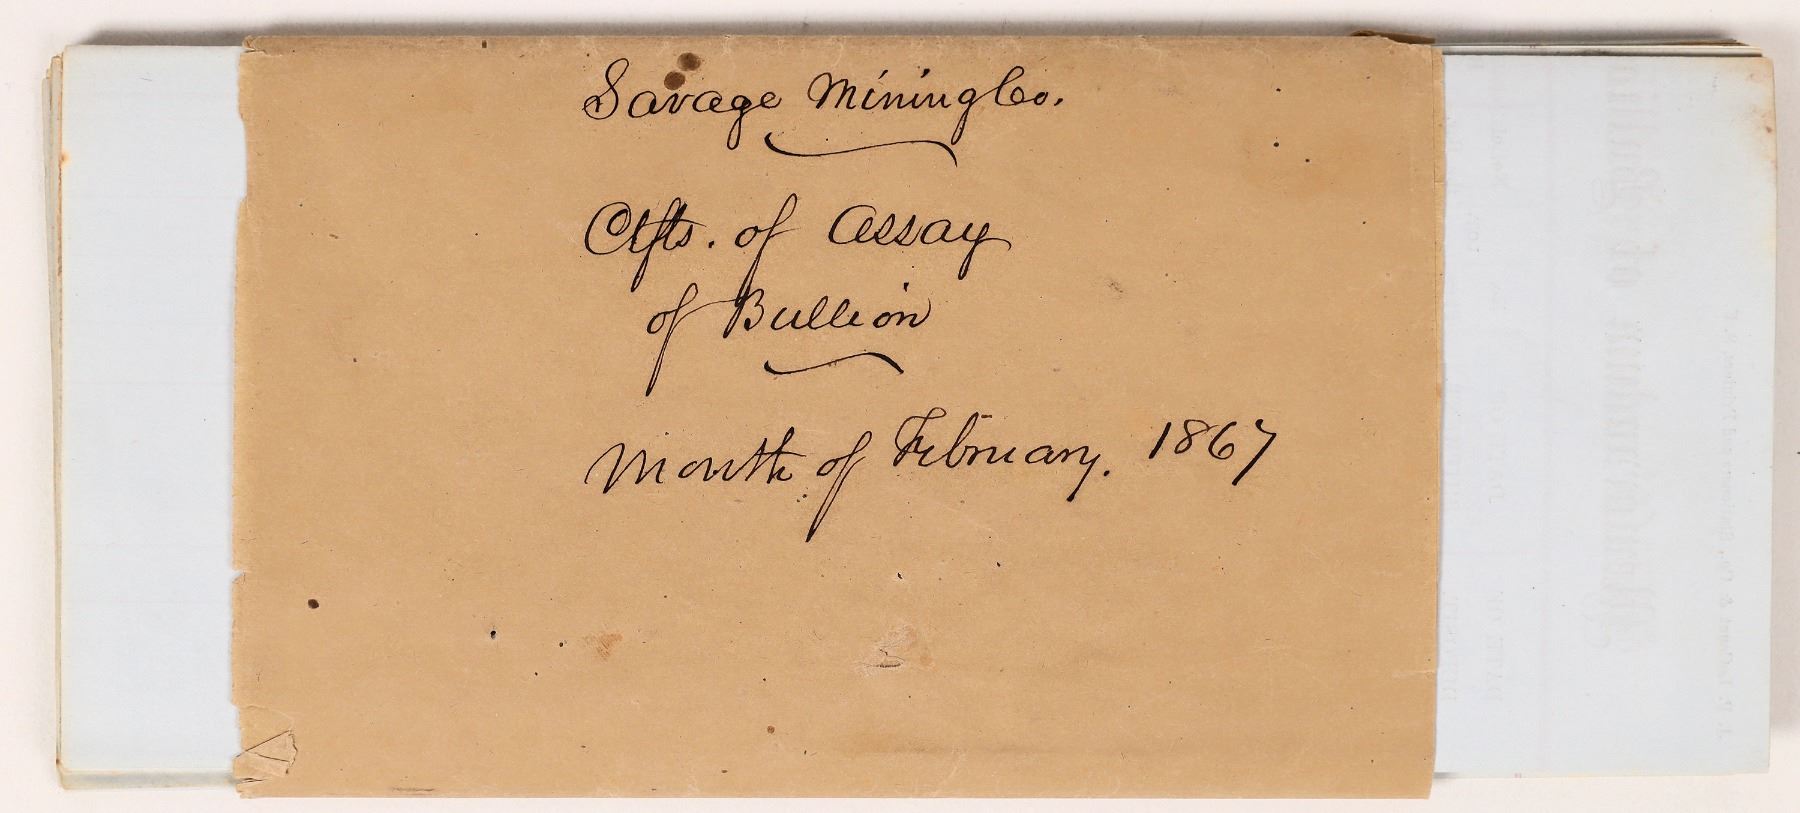 Savage Mining Co.
Ctfts. of Assay
of Bullion
Month of February. 1867